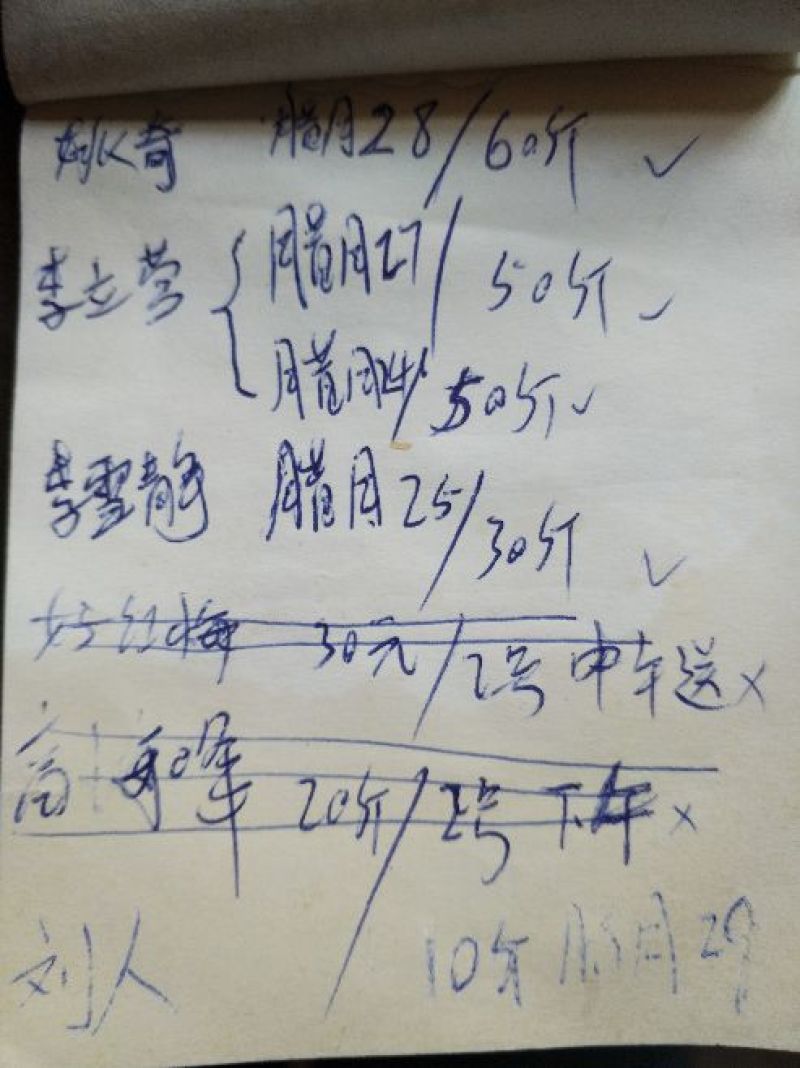 姚人奇 腊月28/60斤 ✓
李立营 { 腊月27/ 50斤 ✓
腊月24/ 50斤 ✓
李雪静 腊月25/30斤 ✓
红梅 30元/2号中午送 ×
高 峰 20斤/2号下午 ×
刘人 10斤 腊月29